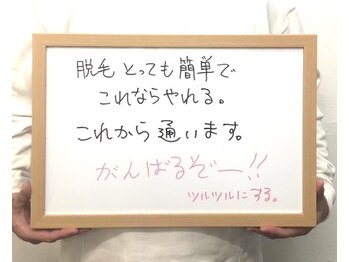 脱毛 とっても簡単で
これならやれる。
これから通います。
がんばるぞー!!
ツルツルにする。